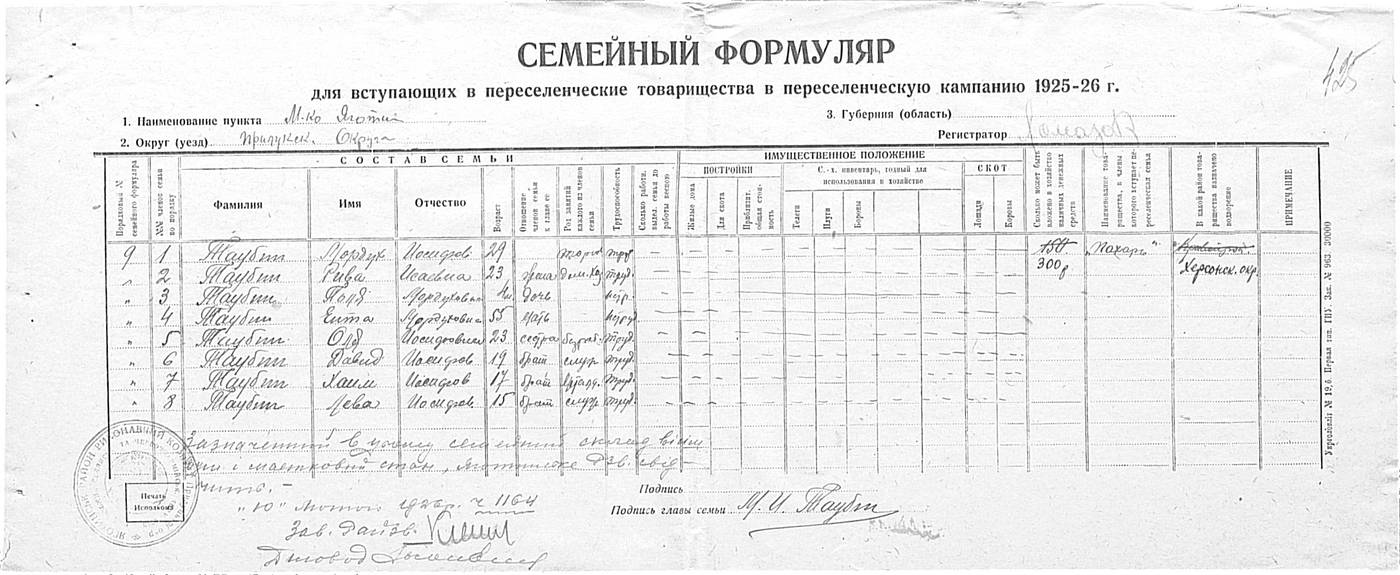 СЕМЕЙНЫЙ ФОРМУЛЯР
425
для вступающих в переселенческие товарищества в переселенческую кампанию 1925-26 г.
1. Наименование пункта М-ко Яготин
3. Губерния (область)
2. Округ (уезд) Прилукск. Округа
Регистратор
Порядковый № семейного формуляра
№№ членов семьи по порядку
СОСТАВ СЕМЬИ
Фамилия
Имя
Отчество
Возраст
Отношение членов семьи к главе ее
Род занятий каждого из членов семьи
Трудоспособность
Сколько работн. выдел. семья до работы весною
ИМУЩЕСТВЕННОЕ ПОЛОЖЕНИЕ
ПОСТРОЙКИ
Жилые дома
Для скота
Приблизит. общая стоимость
С.-х. инвентарь, годный для использования в хозяйстве
Телеги
Плуги
Бороны
СКОТ
Лошади
Коровы
Сколько может быть вложено в хозяйство наличных денежных средств
Наименование товарищества, в члены которого вступает переселенческая семья
В какой район товарищества назначено водворение
ПРИМЕЧАНИЕ
9 1 Таубин Мордух Иосифов 29 торг. труд — 150 „Пахарь“
300 р Херсонск. окр.
„ 2 Таубин Рива Исаевна 23 жена дом. хоз труд.
„ 3 Таубин Поля Мордуховна дочь нетр.
„ 4 Таубин Ента Мордуховна 55 мать нетруд
„ 5 Таубин Оля Иосифовна 23 сестра труд.
„ 6 Таубин Давид Иосифов 19 брат служ труд.
„ 7 Таубин Хаим Иосифов 17 брат труд.
„ 8 Таубин Лева Иосифов 15 брат служ труд.
Зазначенний в цьому семейний склад вісім
і маєтковий стан, Яготинське РЗВ. свід-
чить.-
„10“ Лютого 1926р. ч 1164
Зав. Райзв.
Діловод
Печать Исполкома
Подпись
Подпись главы семьи М. И. Таубин
Укрголовліт № 1926. Первая тип. ГПУ Зак. № 963. 30000